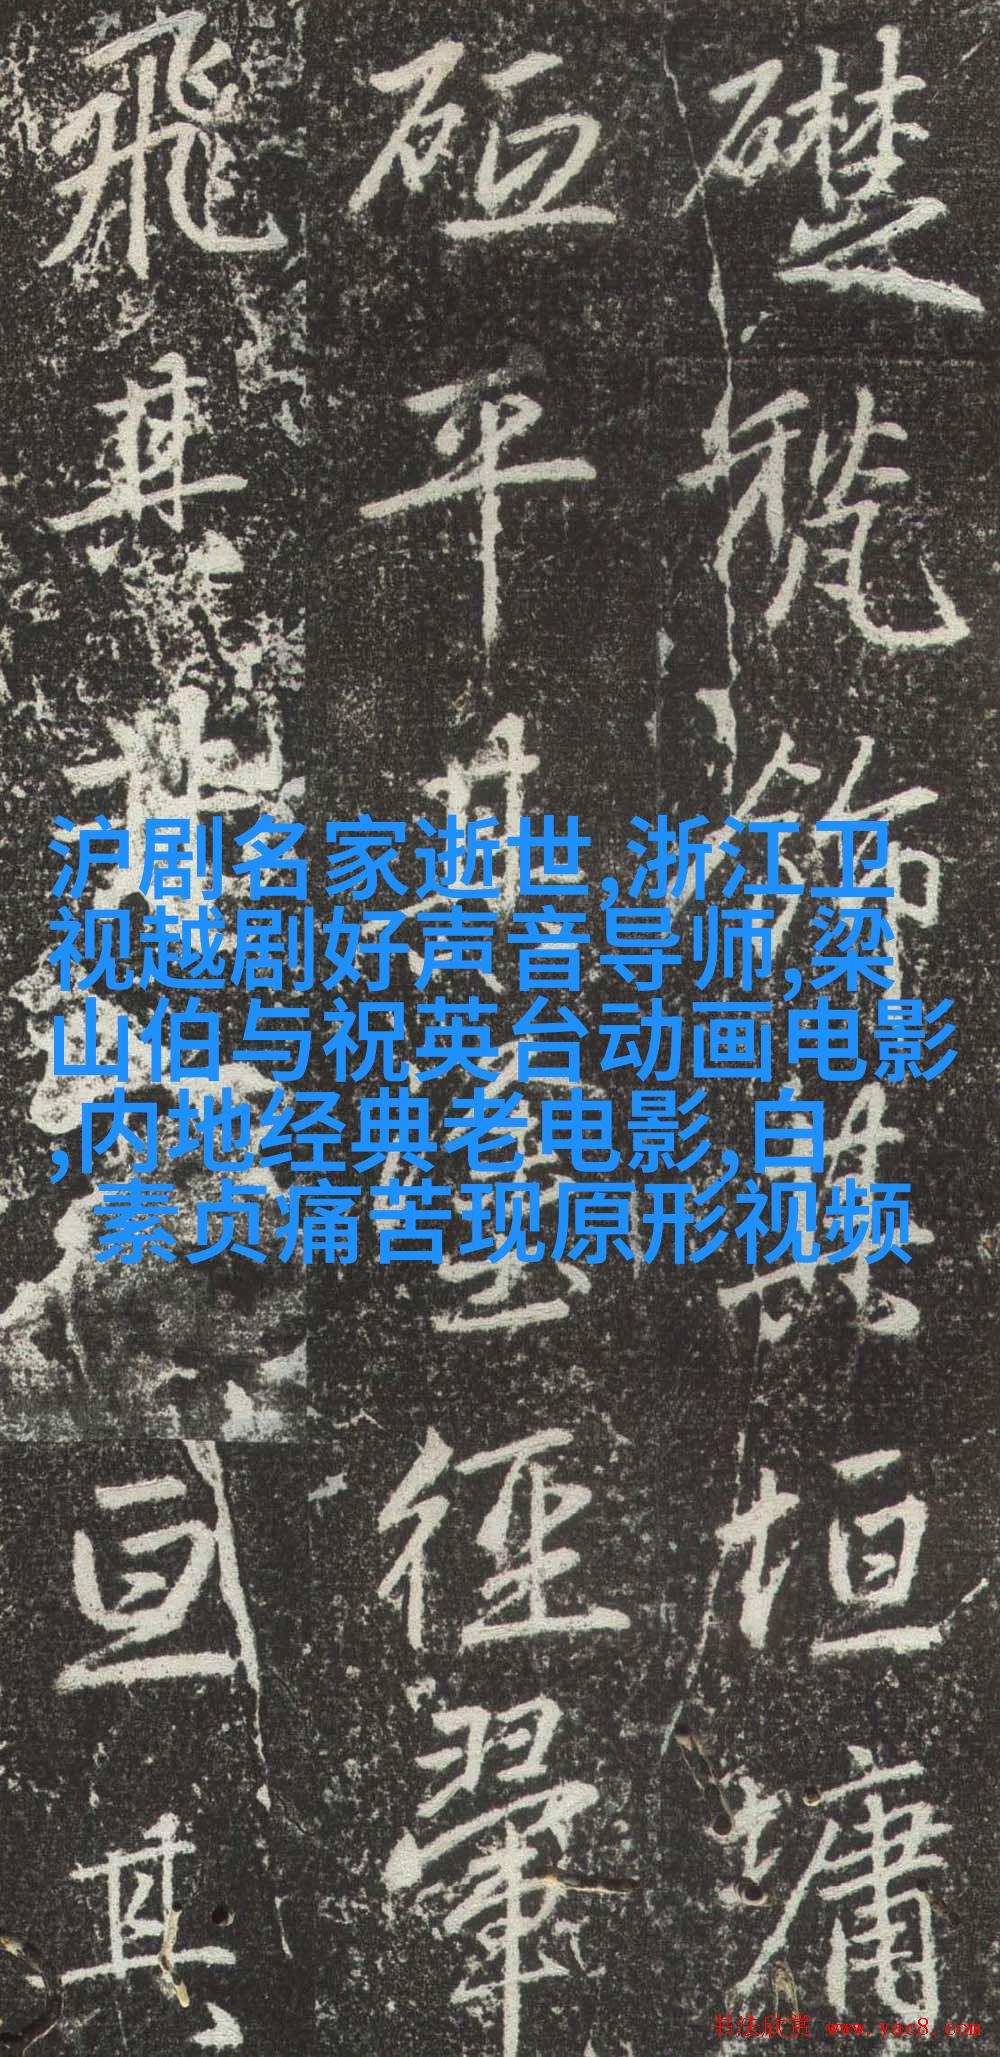 礎
毓
飾
其
垣
墉
砥
平
其
徑
翬
飛
其
亘
其
沪剧名家逝世,浙江卫
视越剧好声音导师,梁
山伯与祝英台动画电影
,内地经典老电影,白
素贞痛苦现原形视频
书法欣赏 www.yac8.com